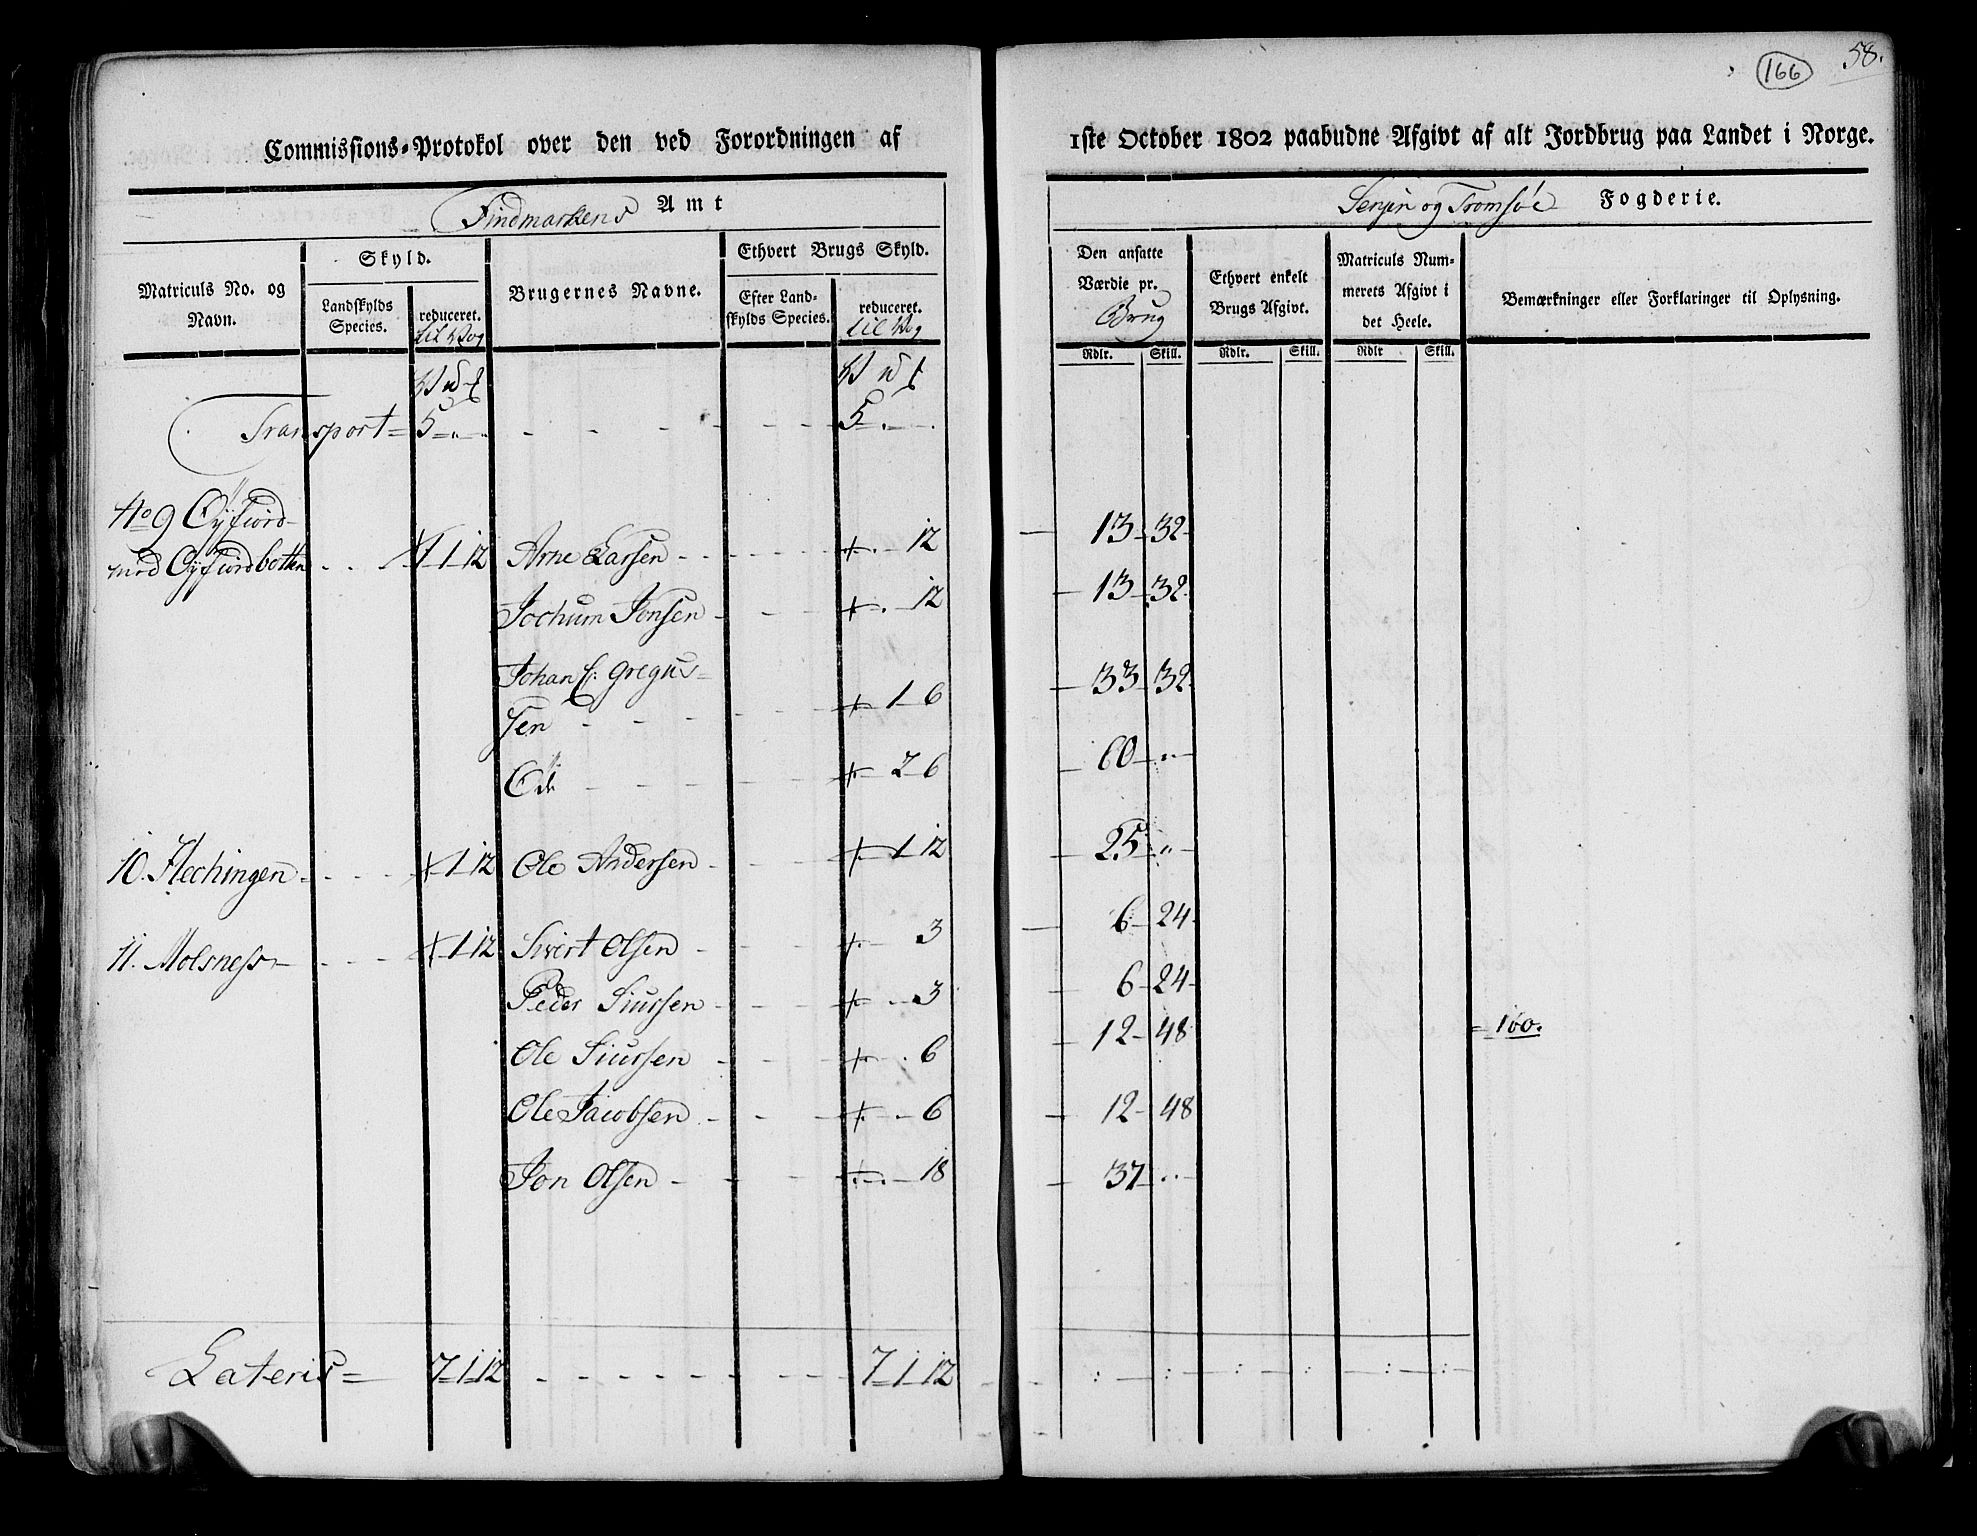 166
58.
Commissions-Protokol over den ved Forordningen af
1ste October 1802 paabudne Afgivt af alt Jordbrug paa Landet i Norge.
Findmarkens Amt
Senjen og Tromsøe Fogderie.
Matriculs No. og Navn.
Skyld.
Landskylds Species.
reduceret. til Vog
Brugernes Navne.
Ethvert Brugs Skyld.
Efter Landskylds Species.
reduceret. til Vog
Den ansatte Værdie pr. Brug
Ethvert enkelt Brugs Afgivt.
Matriculs Nummerets Afgivt i det Heele.
Bemærkninger eller Forklaringer til Oplysning.
Rdlr. Skill. Rdlr. Skill. Rdlr Skill.
Transport = 5 - . - 5 - . -
No 9 Øÿfiord
med Øÿfiordbotten 1 12 Arne Larsen - 12 13 - 32
Jochum Jonsen - 12 13 - 32
Johan C: Gregus=
sen - 1 - 6 33 - 32
Öde - 2 6 60 - "
10. Hechingen 1 12 Ole Andersen - 1 12 25 - "
11. Molsness 1 12 Sivert Olsen - 3 6 - 24
Peder Siursen - 3 6 - 24
Ole Siursen - 6 12 - 48 = 100.
Ole Jacobsen - 6 12 - 48
Jon Olsen - 18 37 - "
Lateris = 7 - 1 - 12 7 - 1 - 12